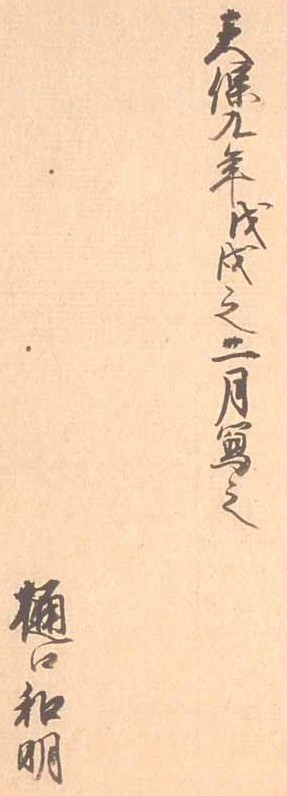 天保九年戊戌之二月寫之
樋口和明